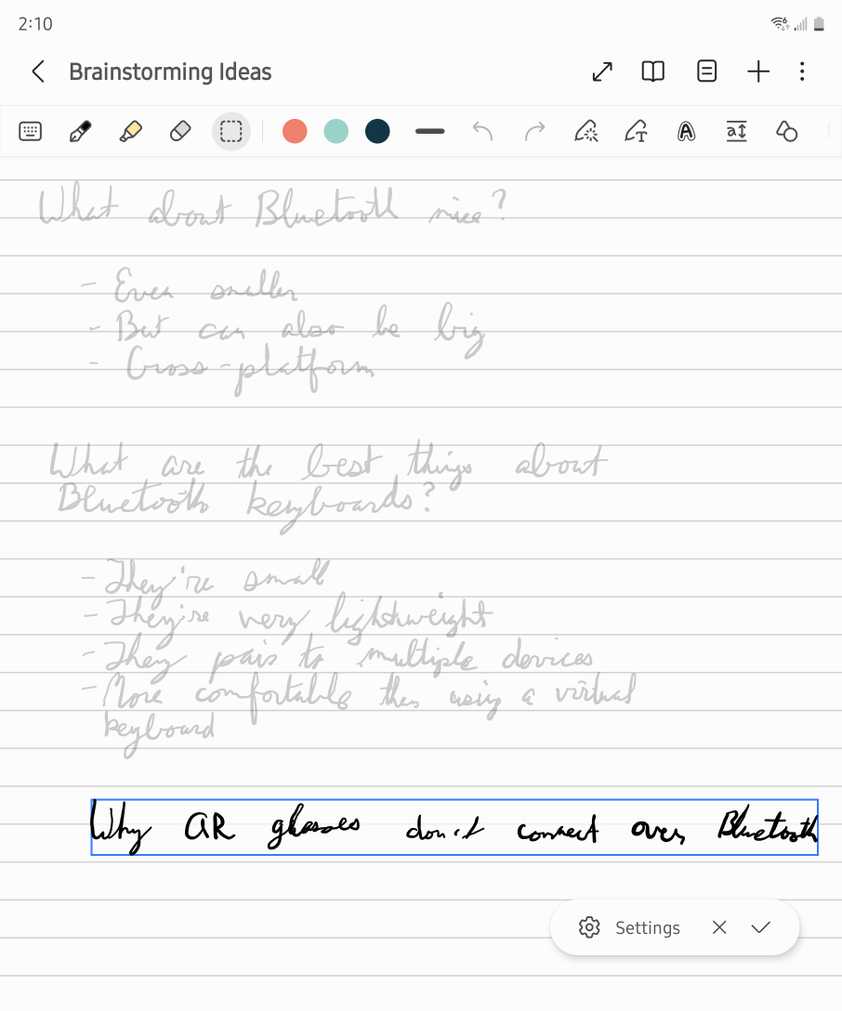 2:10
Brainstorming Ideas
What about Bluetooth mice?
- Even smaller
- But can also be big
- Cross-platform
What are the best things about
Bluetooth keyboards?
- They're small
- They're very lightweight
- They pair to multiple devices
- More comfortable than using a virtual
keyboard
Why AR glasses don't connect over Bluetooth
Settings